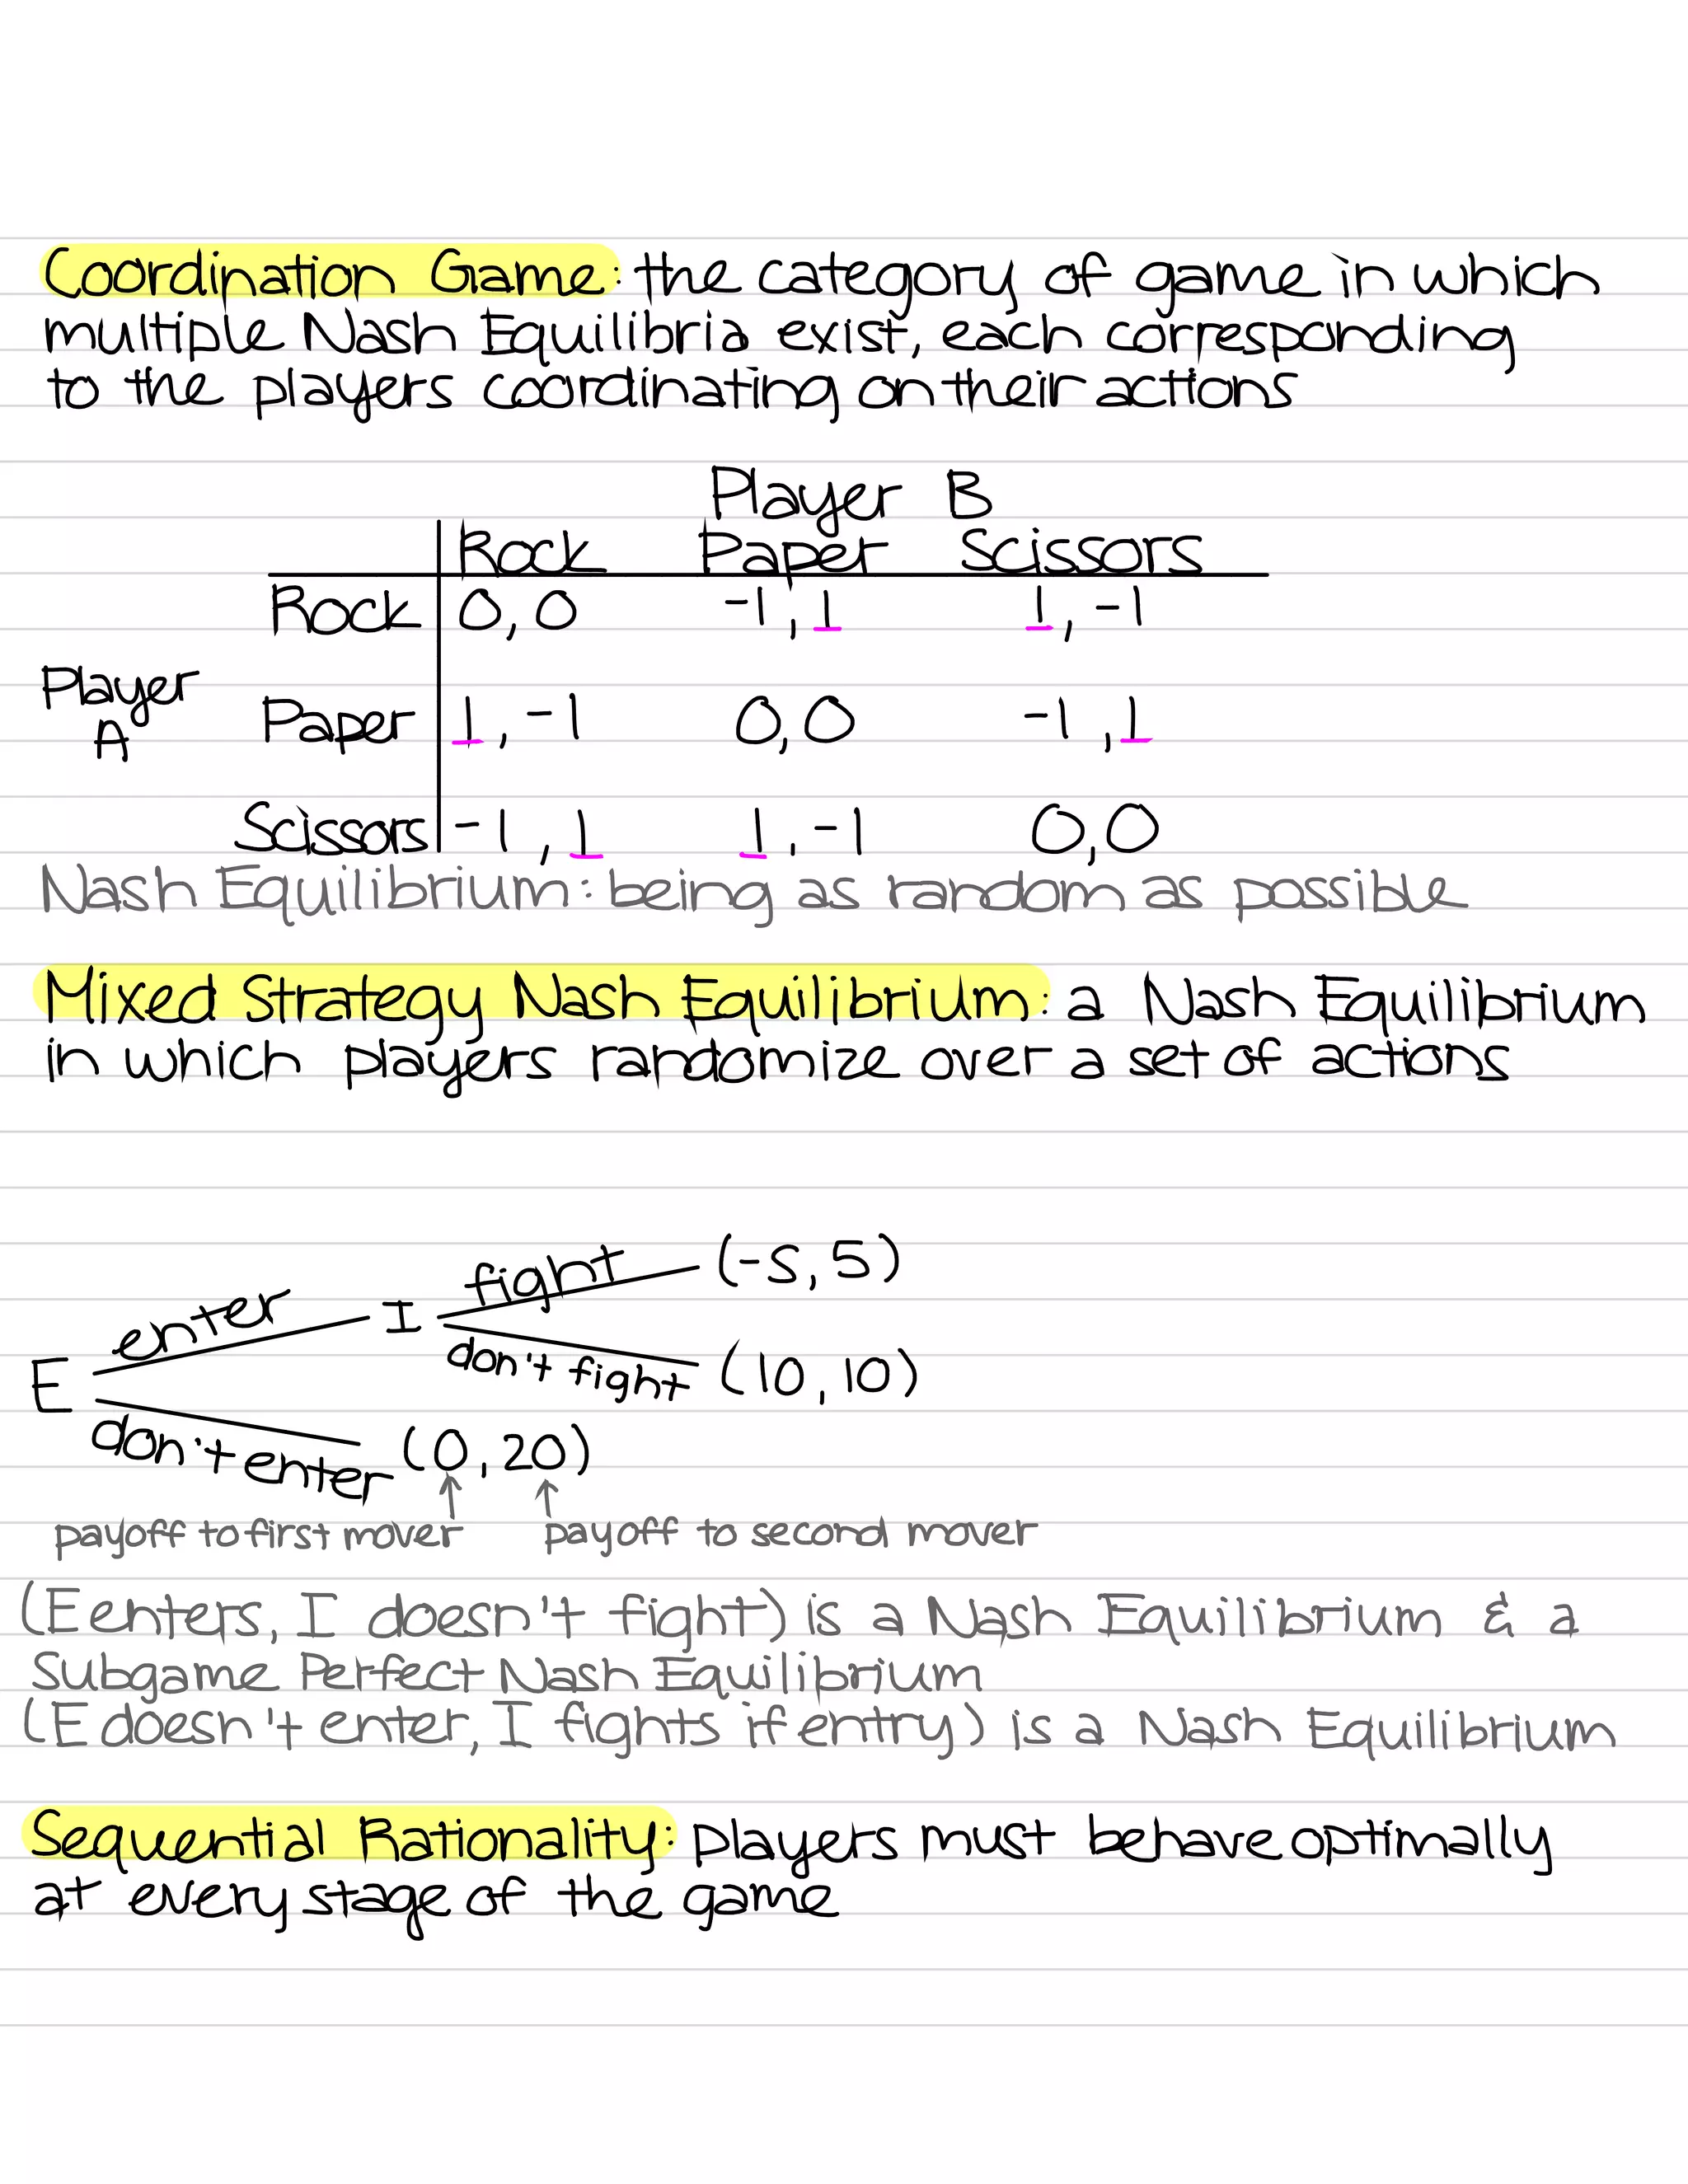 Coordination Game: the category of game in which
multiple Nash Equilibria exist, each corresponding
to the players coordinating on their actions
Player B
Rock Paper Scissors
Rock 0,0 -1,1 1,-1
Player
A
Paper 1,-1 0,0 -1,1
Scissors -1,1 1,-1 0,0
Nash Equilibrium: being as random as possible
Mixed Strategy Nash Equilibrium: a Nash Equilibrium
in which players randomize over a set of actions
fight (-5,5)
enter I
don't fight (10,10)
E
don't enter (0,20)
↑ ↑
payoff to first mover payoff to second mover
(E enters, I doesn't fight) is a Nash Equilibrium & a
Subgame Perfect Nash Equilibrium
(E doesn't enter, I fights if entry) is a Nash Equilibrium
Sequential Rationality: players must behave optimally
at every stage of the game